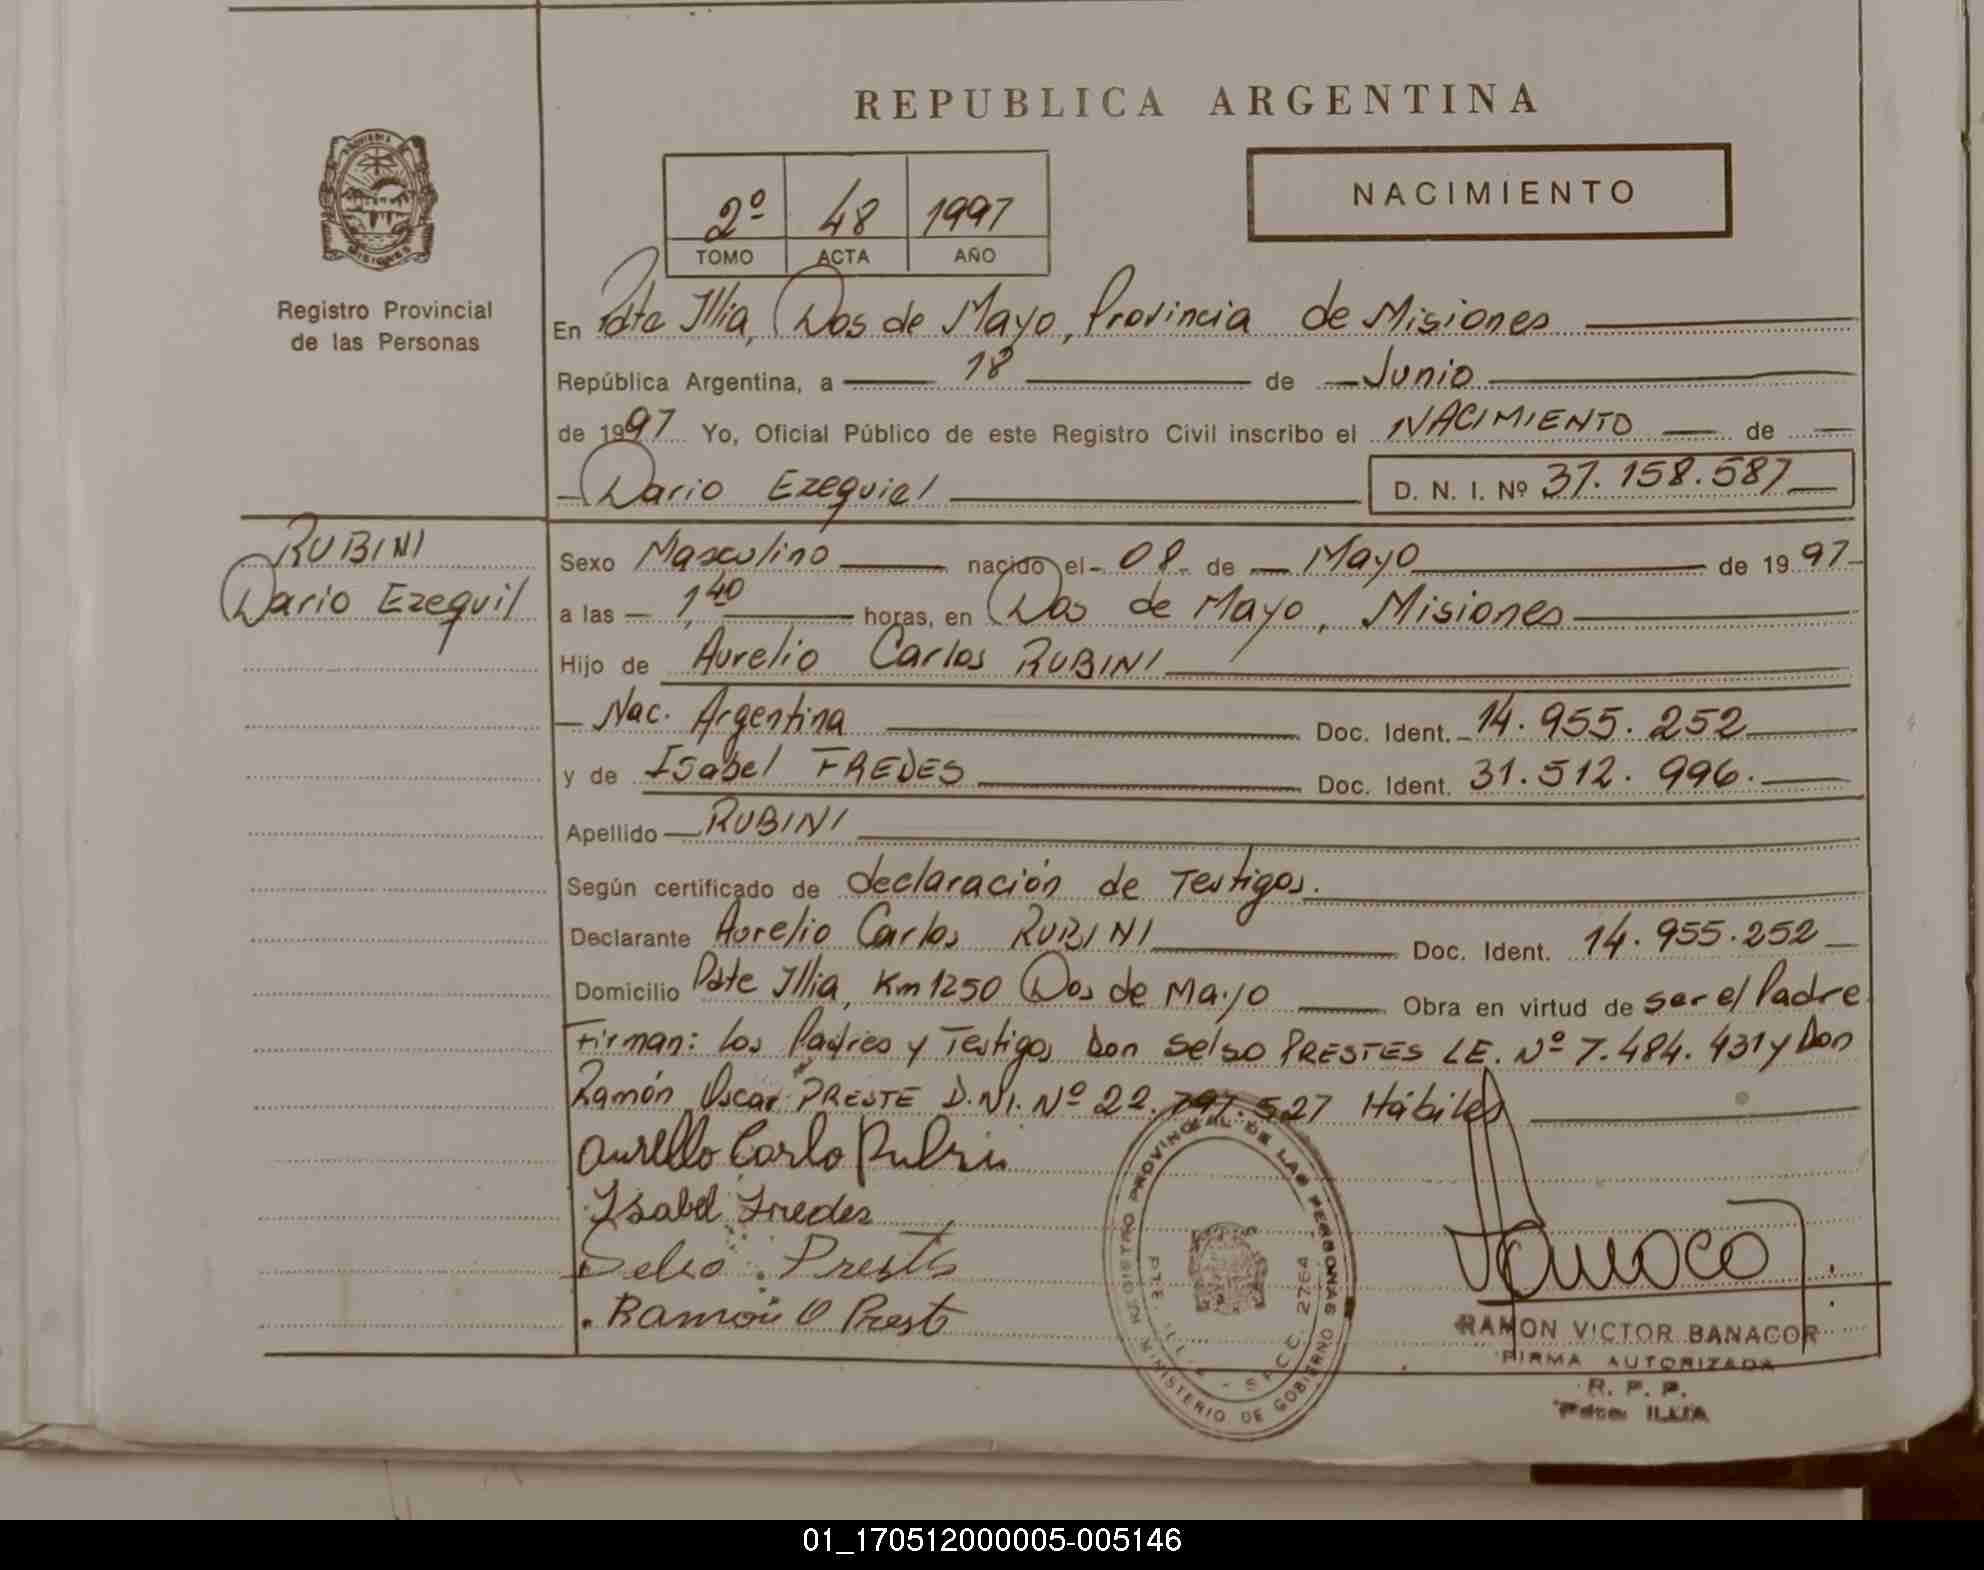 REPUBLICA ARGENTINA
NACIMIENTO
2º 48 1997
TOMO ACTA AÑO
MISIONES
Registro Provincial
de las Personas
En Pdte Illia, Dos de Mayo, Provincia de Misiones
República Argentina, a 18 de Junio
de 1997 Yo, Oficial Público de este Registro Civil inscribo el NACIMIENTO de
Dario Ezequiel D. N. I. Nº 37.158.587
RUBINI
Dario Ezequil
Sexo Masculino nacido el 08 de Mayo de 1997
a las 1,40 horas, en Dos de Mayo, Misiones
Hijo de Aurelio Carlos RUBINI
Nac. Argentina Doc. Ident. 14.955.252
y de Isabel FREDES Doc. Ident. 31.512.996.
Apellido RUBINI
Según certificado de declaración de Testigos.
Declarante Aurelio Carlos RUBINI Doc. Ident. 14.955.252
Domicilio Pdte Illia, Km 1250 Dos de Mayo Obra en virtud de ser el Padre
Firman: Los Padres y Testigos Don Selso PRESTES LE. Nº 7.484.431 y Don
Ramón Oscar PRESTE D.NI. Nº 22.797.527 Hábiles
Aurello Carlo Rubini
Isabel Fredes
Selso Prestes
Ramón O Prest
REGISTRO PROVINCIAL DE LAS PERSONAS
MINISTERIO DE GOBIERNO
PTE. 2764
RAMON VICTOR BANACOR
FIRMA AUTORIZADA
R. P. P.
Pdte. ILLIA
01_170512000005-005146